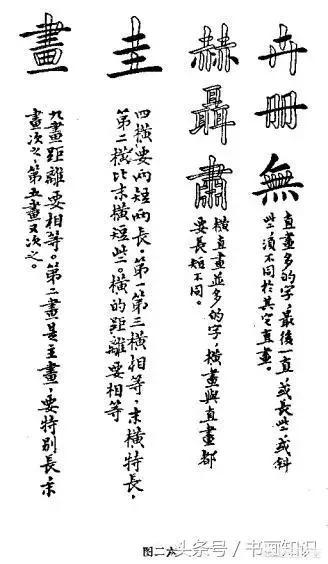 卉
冊
無
直畫多的字，最後一直或長些或斜
些，須不同於其它直畫。
赫
聶
肅
橫直畫並多的字，橫畫與直畫都
要長短不同。
圭
四橫要向短向長。第一第三橫相等，末橫特長，
第二橫比末橫短些。橫的距離要相等
畫
九畫距離要相等。第二畫是主畫，要特別長，末
畫次之，第五畫又次之。
图二六
头条号／书画知识